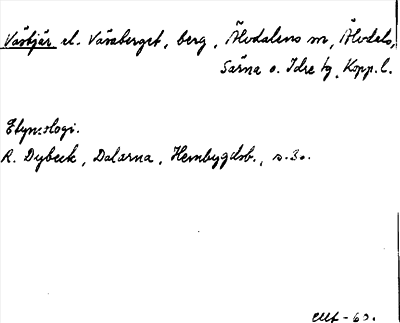 Västjär el. Vasaberget, berg, Älvdalens sn, Älvdals,
Särna o. Idre tg, Kopp. l.
Etymologi.
R. Dybeck, Dalarna, Hembygdsb., s. 30.
-63.